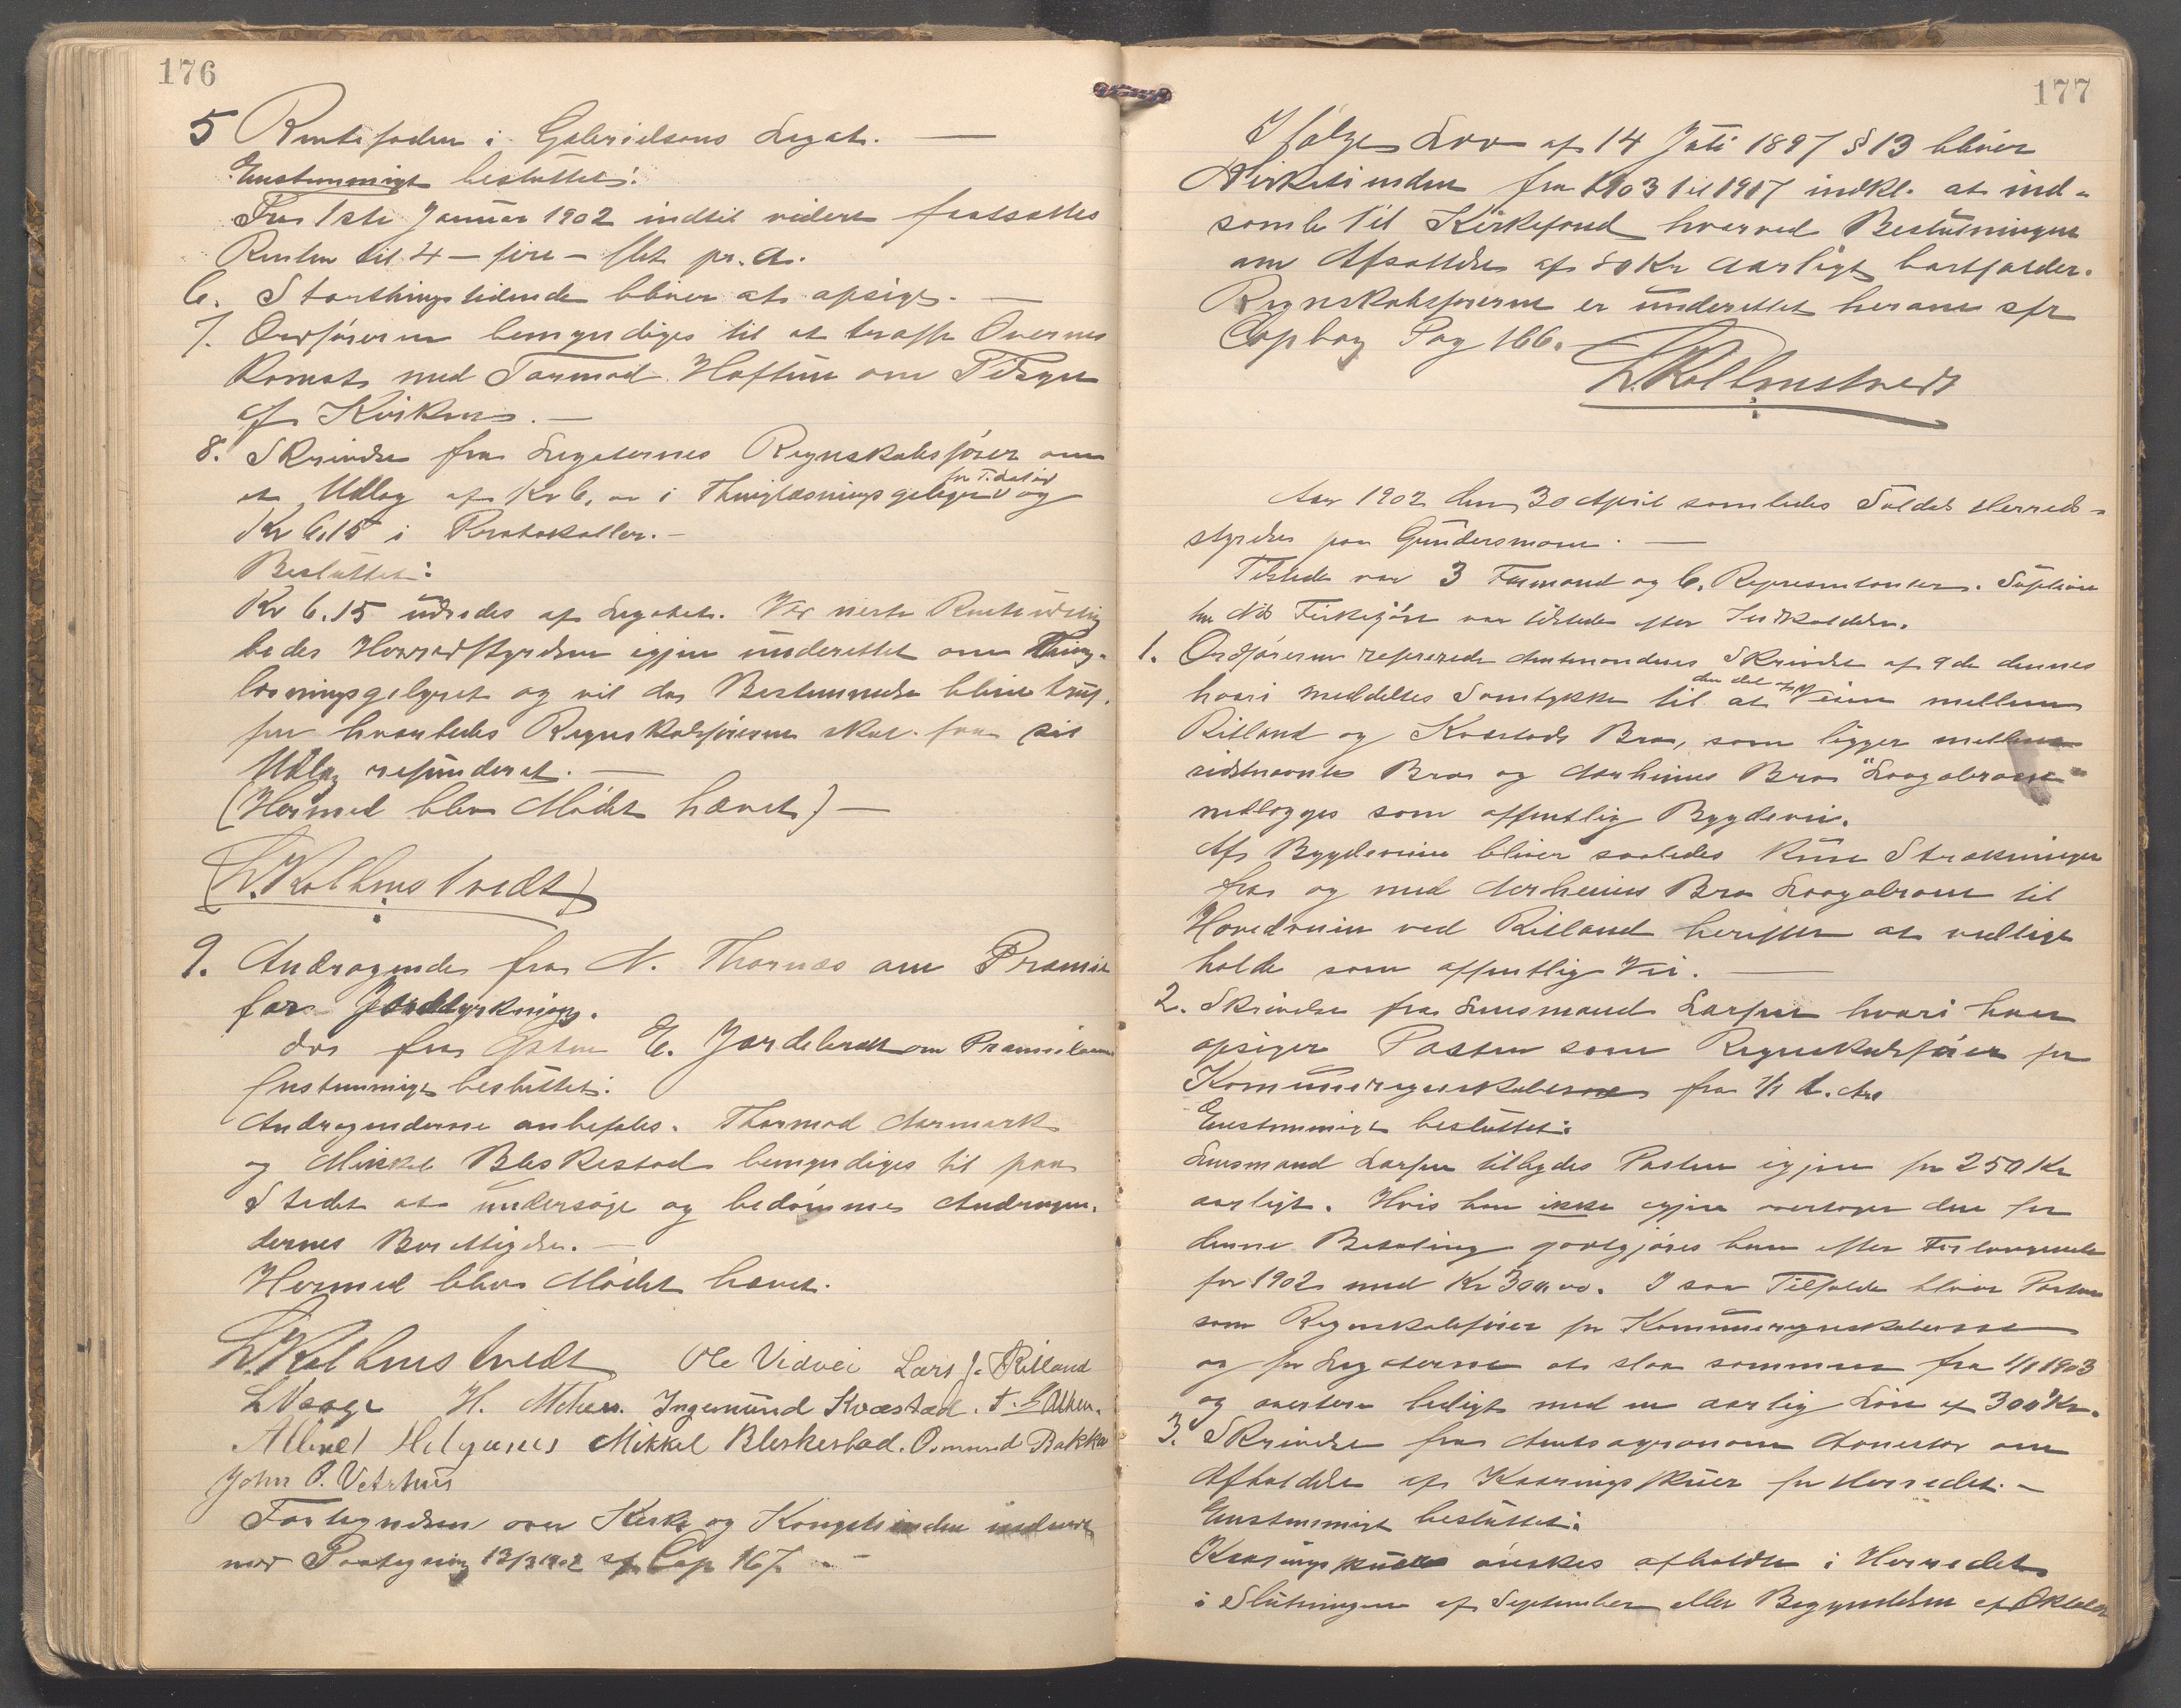 176
5 Rentefoden i Gabrielsens Legat. —
Enstemmigt besluttet:
Fra 1ste Januar 1902 indtil videre fastsættes
Renten til 4 – fire – pCt pr. a.
6. Storthingstidende bliver at opsige. —
7. Ordføreren bemyndiges til at træffe Overens
komst med Tormod Høftun om Tilsyn
af Kirken. —
8. Skrivelse fra Legaternes Regnskabsfører om
et Udlag af Kr 6,00 i Thinglæsningsgebyrer og
Kr 6,15 i Protokoller. —
Besluttet:
Kr 6.15 udredes af Legatet. Ved neste
bedes Herredstyrelsen igjen underettet om Thing-
læsningsgebyret og vil da Bestemmelse blive truf-
fen hvorledes Regnskabsføreren skal faa sit
Udlæg refunderet. —
(Hermed blev Mødet hævet) —
L. Kolbenstvedt
9. Andragende fra N. Thornæs om Præmie
for Jorddyrkning.
do fra E. Jordebrekk om Præmielaan
Enstemmigt besluttet:
Andragenderne anbefales. Thormod Aarmark
og Mikkel Bleskestad bemyndiges til paa
Stedet at undersøge og bedømme Andragen-
dernes Berettigelse. —
Hermed blev Mødet hævet.
L. Kolbenstvedt Ole Vidvei Lars J. Ritland
L Vaage H. Mehus. Ingemund Kvæstad.
Mikkel Bleskestad. Osmund Bakka
John O. Vetrhus
Fortegnelsen over Kirke og Kongetienden
med Paategning 13/3 1902 sf Cop 167. —
177
Ifølge Lov af 14 Juli 1897 § 13 bliver
Kirketienden fra 1903 til 1917 indkl. at ind-
samle til Kirkefond hvorved Beslutningen
om Afsættelse af 80 Kr aarligt bortfalder.
Regnskabsføreren er underettet herom sfr
Copbog Pag 166.
L. Kolbenstvedt
Aar 1902 den 30 April samledes Suldal Herreds-
styrelse paa Gundersmoen. —
Tilstede var 3 Formænd og 6 Representanter. Suplean
ten Nils Fiskekjøn var tilstede efter Indkaldelse.
1. Ordføreren refererede Amtmandens Skrivelse af 9de dennes
hvori meddeltes Samtykke til at den del af Veien mellem
Ritland og Kvæstads Bro, som ligger mellem
sidstnævnte Bro og Aarhuus Bro "Laagabroen"
nedlægges som offentlig Bygdevei.
Af Bygdeveien bliver saaledes kun Strækningen
fra og med Aarhuus Bro Laagabroen til
Hovedveien ved Ritland herefter at vedlige
holde som offentlig Vei. —
2. Skrivelse fra Lensmand Larsen hvori han
opsiger Posten som Regnskabsfører for
Kommuneregnskaberne fra 1/1 d. Ar.
Enstemmigt besluttet:
Lensmand Larsen tilbydes Posten igjen for 250 Kr
aarligt. Hvis han ikke igjen overtager den for
denne Betaling godtgjøres ham efter Forlangende
for 1902 med Kr 300,00. I saa Tilfælde bliver Posten
som Regnskabsfører for Kommuneregnskaberne
og for Legaterne at slaa sammen fra 1/1 1903
og averteres ledigt med en aarlig Løn af 300 Kr.
3. Skrivelse fra Amtsagronom Aanestad om
Afholdelse af Kaaringsskuer for Herredet. —
Enstemmigt besluttet:
Kaaringsskuer ønskes afholdte i Herredet
i Slutningen af September eller Begyndelsen af Oktober